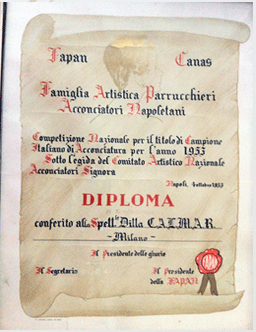 Fapan Canas
Famiglia Artistica Parrucchieri
Acconciatori Napoletani
Competizione Nazionale per il titolo di Campione
Italiano di Acconciatura per l'anno 1953
Sotto l'egida del Comitato Artistico Nazionale
Acconciatori Signora
Napoli, 4 ottobre 1953
DIPLOMA
conferito alla Spell. Ditta CALMAR
-Milano-
Il Presidente delle giurie
Il Segretario Il Presidente
della FAPAN